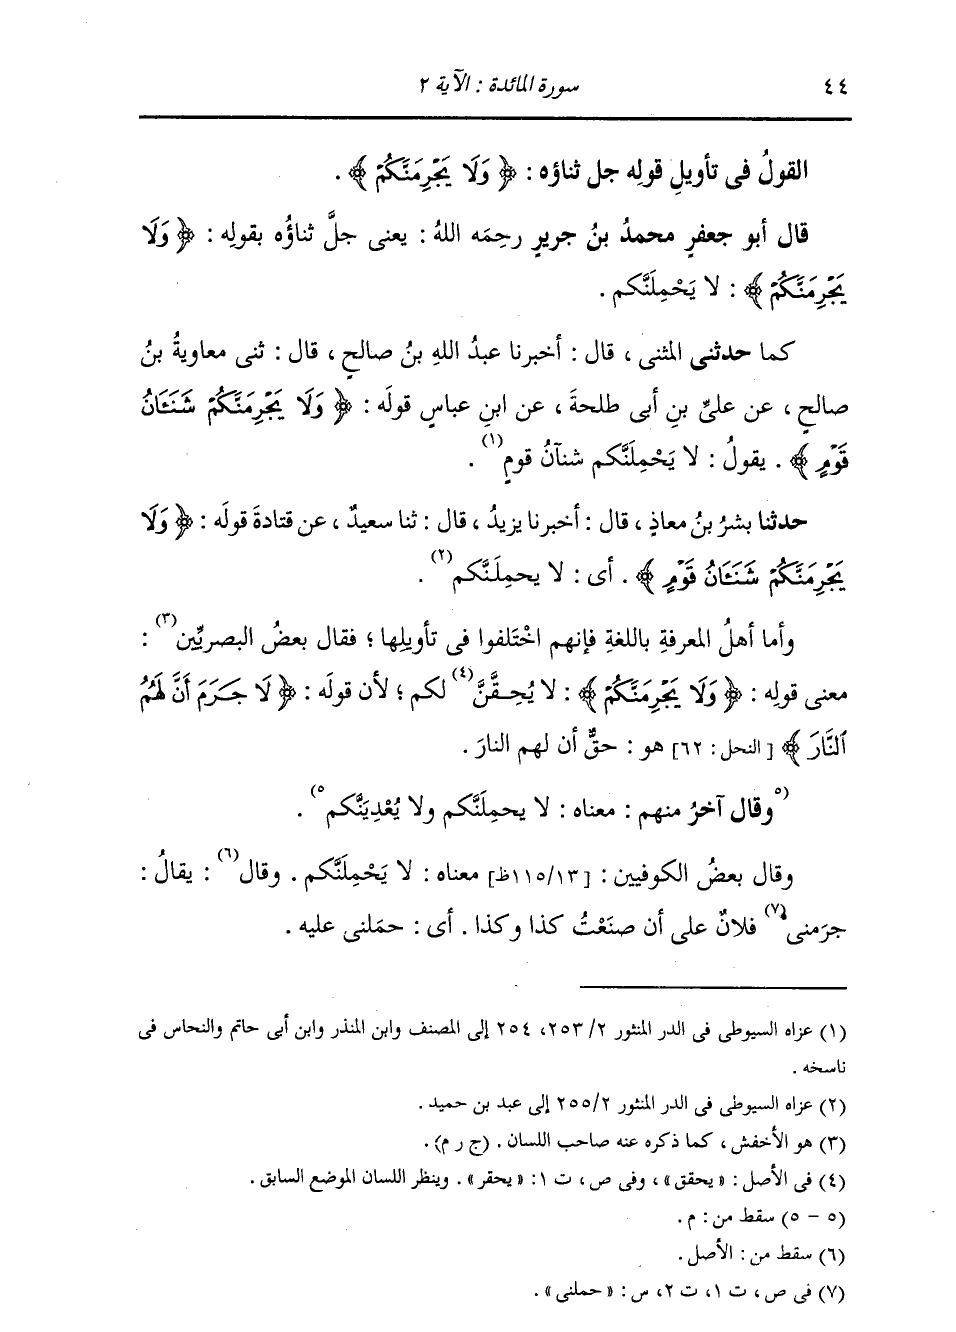 ٤٤
سورة المائدة : الآية ٢
القولُ فى تأويلِ قولِه جل ثناؤه : ﴿ وَلَا يَجْرِمَنَّكُمْ ﴾ .
قال أبو جعفرٍ محمدُ بنُ جريرٍ رحِمَه اللهُ : يعنى جلَّ ثناؤُه بقولِه : ﴿ وَلَا
يَجْرِمَنَّكُمْ ﴾ : لا يَحْمِلَنَّكم .
كما حدثنى المثنى ، قال : أخبرنا عبدُ اللهِ بنُ صالحٍ ، قال : ثنى معاويةُ بنُ
صالحٍ ، عن علىِّ بنِ أبى طلحةَ ، عن ابنِ عباسٍ قولَه : ﴿ وَلَا يَجْرِمَنَّكُمْ شَنَـَٔانُ
قَوْمٍ ﴾ . يقولُ : لا يَحْمِلَنَّكم شنآنُ قومٍ(١) .
حدثنا بشرُ بنُ معاذٍ ، قال : أخبرنا يزيدُ ، قال : ثنا سعيدٌ ، عن قتادةَ قولَه : ﴿ وَلَا
يَجْرِمَنَّكُمْ شَنَـَٔانُ قَوْمٍ ﴾ . أى : لا يحمِلَنَّكم(٢) .
وأما أهلُ المعرفةِ باللغةِ فإنهم اخْتَلفوا فى تأويلِها ؛ فقال بعضُ البصريِّين(٣) :
معنى قولِه : ﴿ وَلَا يَجْرِمَنَّكُمْ ﴾ : لا يُحِقَّنَّ(٤) لكم ؛ لأن قولَه : ﴿ لَا جَرَمَ أَنَّ لَهُمُ
ٱلنَّارَ ﴾ [ النحل : ٦٢] هو : حقٌّ أن لهم النارَ .
(٥وقال آخرُ منهم : معناه : لا يحمِلَنَّكم ولا يُعْدِيَنَّكم٥) .
وقال بعضُ الكوفيين : [١١٥/١٣ظ] معناه : لا يَحْمِلَنَّكم . وقال(٦) : يقالُ :
جرَمنى(٧) فلانٌ على أن صنَعْتُ كذا وكذا . أى : حمَلنى عليه .
(١) عزاه السيوطى فى الدر المنثور ٢/ ٢٥٣، ٢٥٤ إلى المصنف وابن المنذر وابن أبى حاتم والنحاس فى
ناسخه .
(٢) عزاه السيوطى فى الدر المنثور ٢/ ٢٥٥ إلى عبد بن حميد .
(٣) هو الأخفش ، كما ذكره عنه صاحب اللسان . (ج ر م) .
(٤) فى الأصل : « يحقق » ، وفى ص ، ت ١: « يحقر » . وينظر اللسان الموضع السابق .
(٥ - ٥) سقط من : م .
(٦) سقط من : الأصل .
(٧) فى ص ، ت ١، ت ٢، س : « حملنى » .